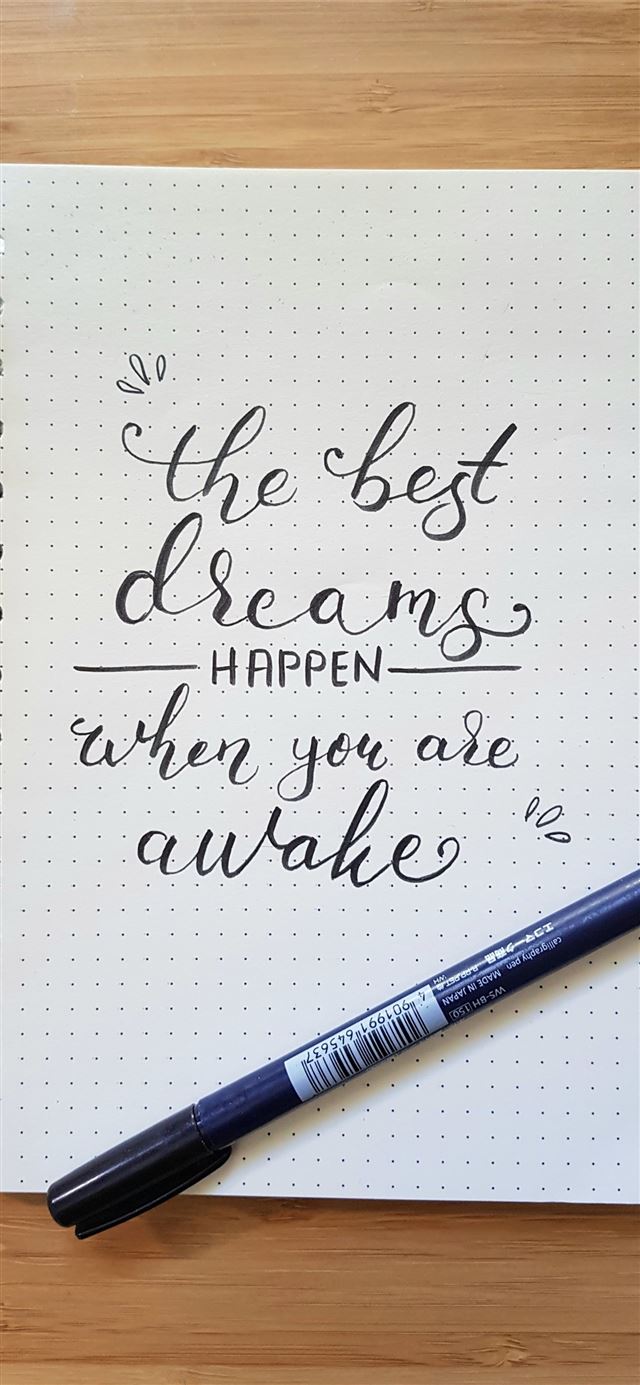 the best
dreams
HAPPEN
when you are
awake
calligraphy pen MADE IN JAPAN
WS-BH 150
4901991645637